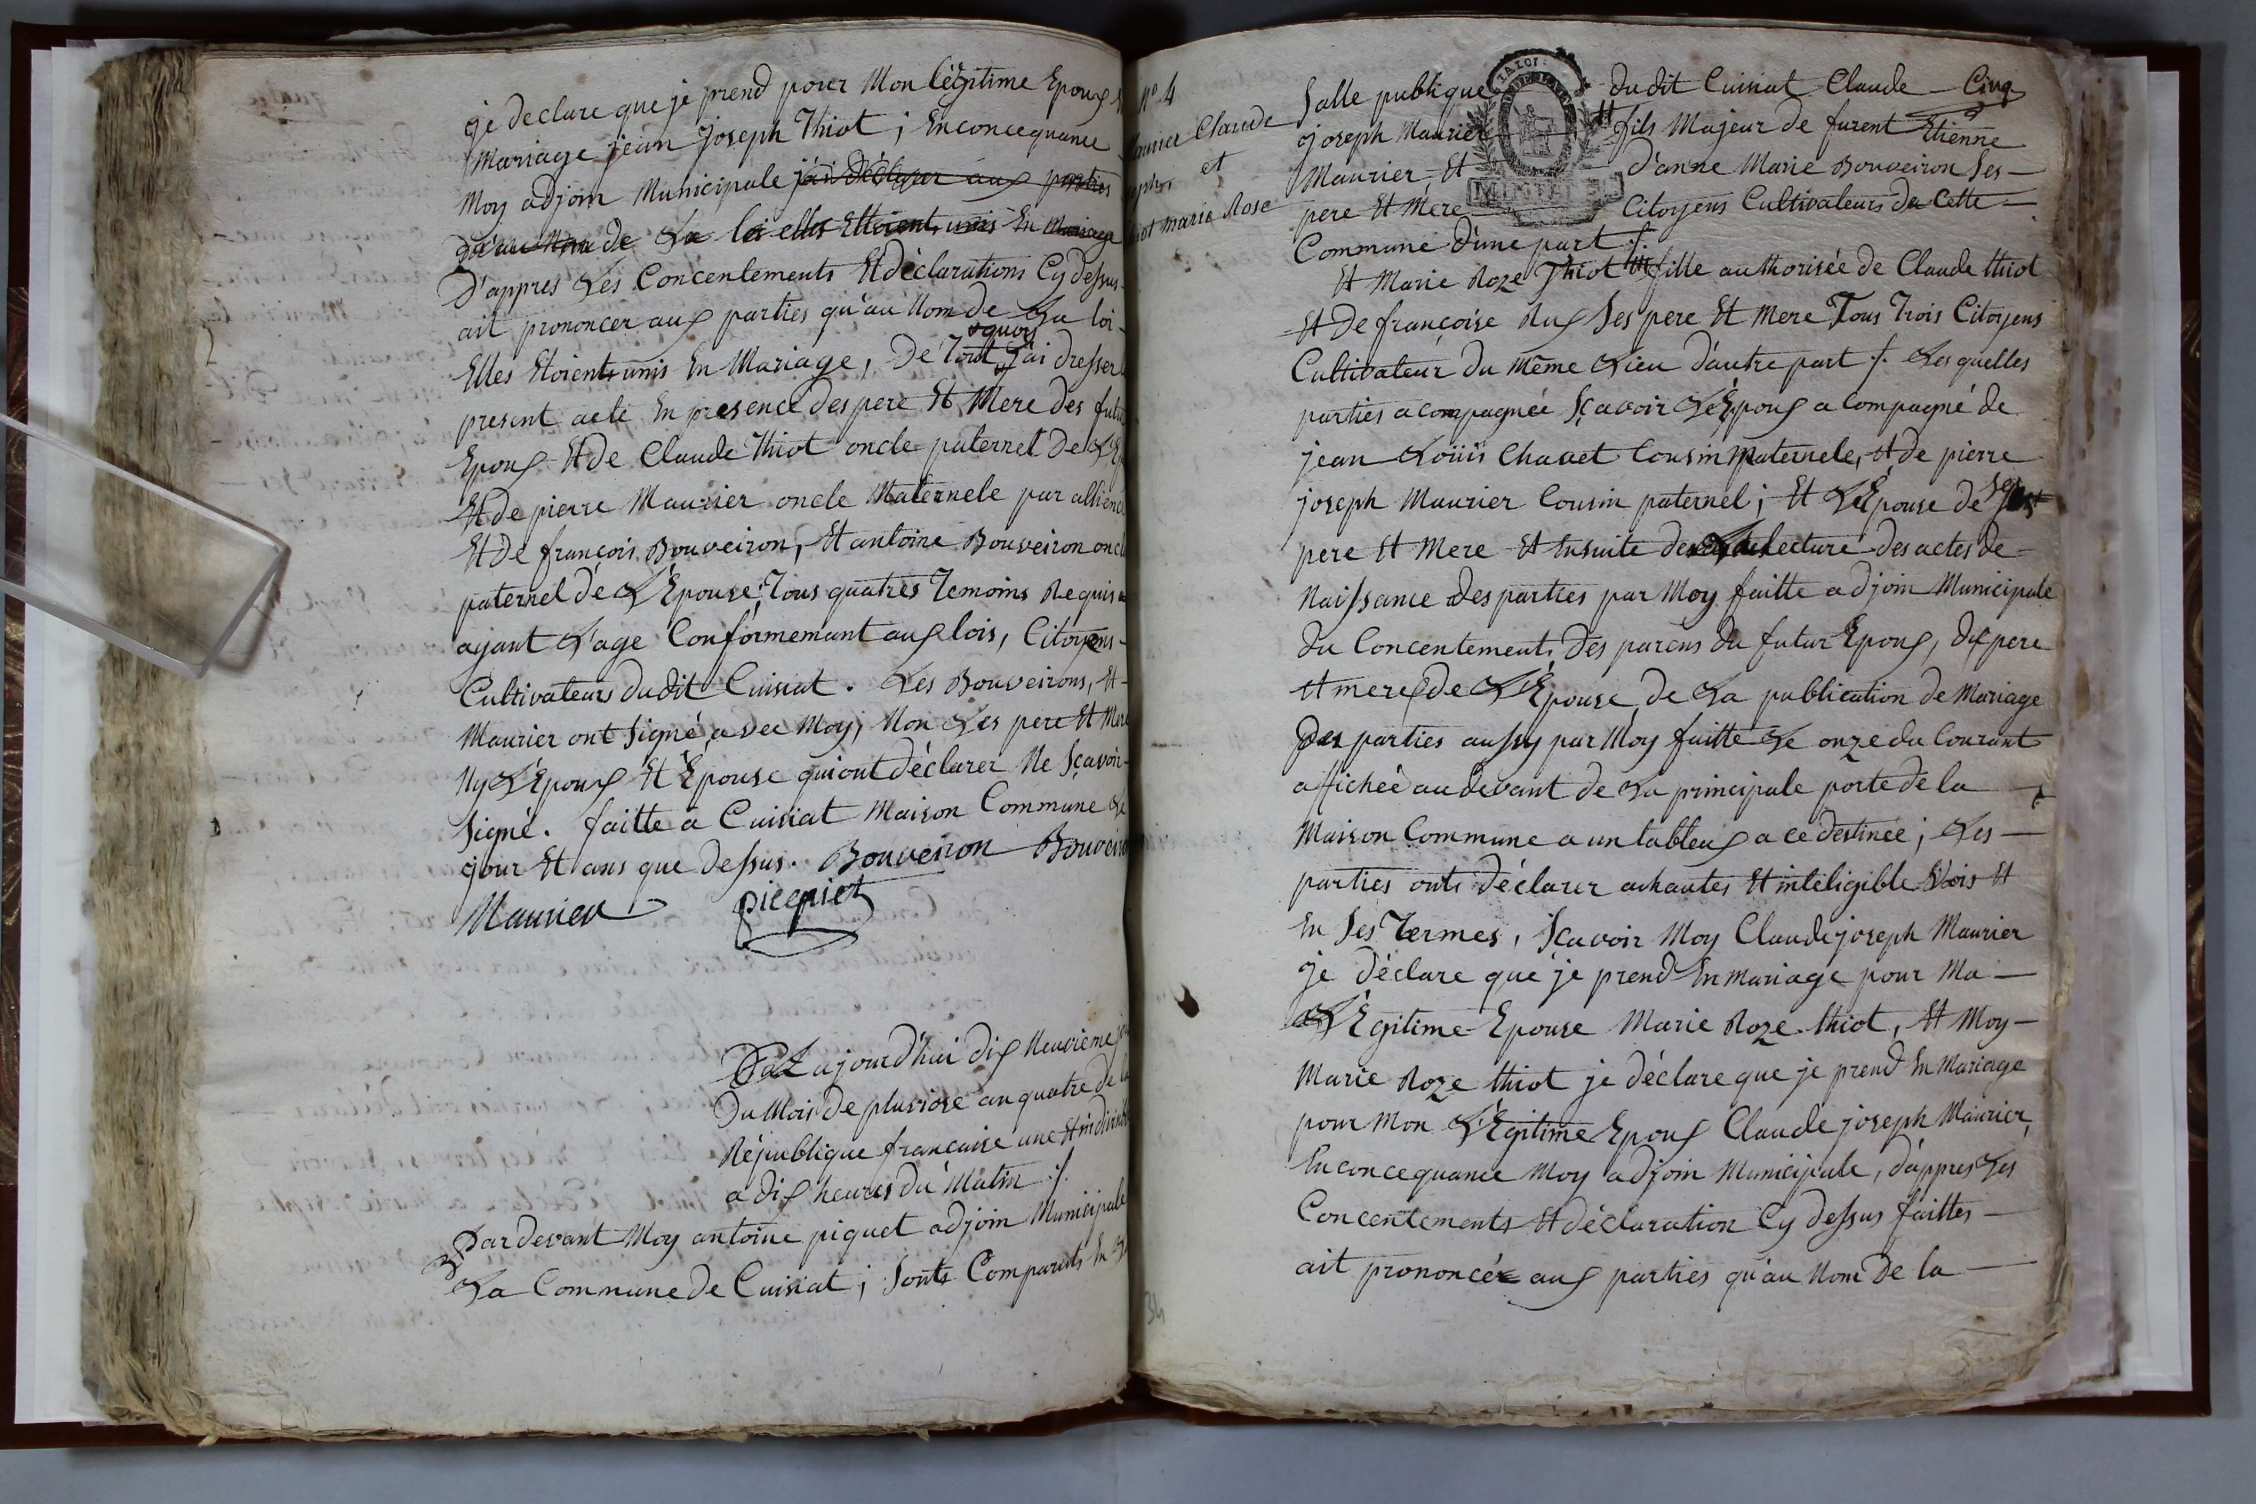 je declare que je prend pour Mon légitime Epoux
Mariage jean joseph Thiot ; En concequance
Moy adjoin Municipale j'ai déclarer aux parties
qu'au Nom de La loi elles Ettoient unis En Mariage
D'appres Les Concentements Et déclarations Cy dessus
ait prononcer aux parties qu'au Nom de La loi
Elles Etoient unis En Mariage, De Tout quoy j'ai dresser
present acte En presence des pere Et Mere des futur
Epoux Et de Claude Thiot oncle paternel De
Et de pierre Maurier oncle Maternele par allience
Et de françois Bouveiron, Et antoine Bouveiron oncle
paternel de L'Epouse ; Tous quatres Temoins Requis
ayant L'age Conformemant aux lois, Citoyens
Cultivateurs dudit Cuisiat . Les Bouveirons, Et
Maurier ont Signé avec Moy, Non Les pere Et Mere
Ny L'Epoux Et Epouse qui ont déclarer Ne Sçavoir
Signé . faitte a Cuisiat Maison Commune Le
jour Et ans que dessus . Bouveiron Bouveiron
Maurier picquet
ajourd'hui dix Neuvieme
Du Mois de pluviose an quatre de la
République francaise une Et indivisible
a dix heures du Matin ./.
Pardevant Moy antoine piquet adjoin Municipale
La Commune de Cuisiat ; Sonts Comparuts En
N°. 4
Maurier Claude
joseph, et
Thiot marie Rose
34
LA LOI
Salle publique dudit Cuisiat Claude Cinq
joseph Maurier fils Majeur de furent Etienne
Maurier, Et d'anne Marie Bouveiron Ses
pere Et Mere Citoyens Cultivateurs de Cette
Commune d'une part ./.
Et Marie Roze Thiot fille authorisée de Claude thiot
Et De françoise Rux Ses pere Et Mere Tous Trois Citoyens
Cultivateur du Même Lieu d'autre part ./. Les quelles
parties acompagnée Sçavoir L'Epoux acompagné de
jean Loüis Chavet Cousin Maternele, Et de pierre
joseph Maurier Cousin paternel ; Et L'Epouse de Ses
pere Et Mere Et Ensuite de lecture des actes de
Naissance des parties par Moy faitte adjoin Municipale
du Concentements des parens du futur Epoux, du pere
Et mere de L'Epouse de La publication de Mariage
Des parties aussy par Moy faitte Le onze du Courant
affichée au devant de La principale porte de la
Maison Commune a un tableux a ce destinée ; Les
parties onts déclarer a hautes Et inteligible Vois Et
En Ses Termes, Sçavoir Moy Claude joseph Maurier
je déclare que je prend En Mariage pour Ma
LEgitime Epouse Marie Roze thiot, Et Moy
Marie Roze thiot je déclare que je prend En Mariage
pour Mon LEgitime Epoux Claude joseph Maurier,
En concequance Moy adjoin Municipale, d'appres Les
Concentements Et déclaration Cy dessus faittes
ait prononcée aux parties qu'au Nom de la